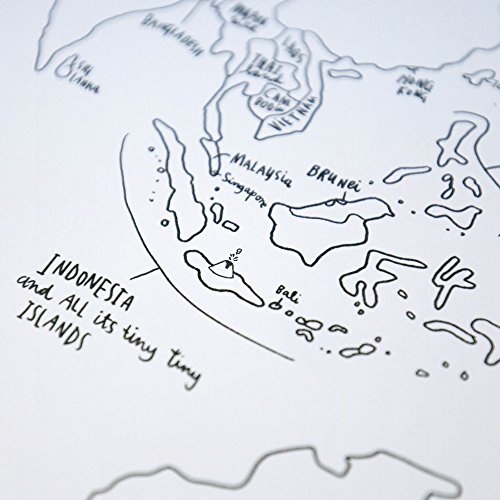 BANGLADESH
LAOS
THAI
CAM
BODIA
VIETNAM
SRI
LANKA
HONG
KONG
MALAYSIA
Singapore
BRUNEI
Bali
INDONESIA
and ALL its tiny tiny
ISLANDS